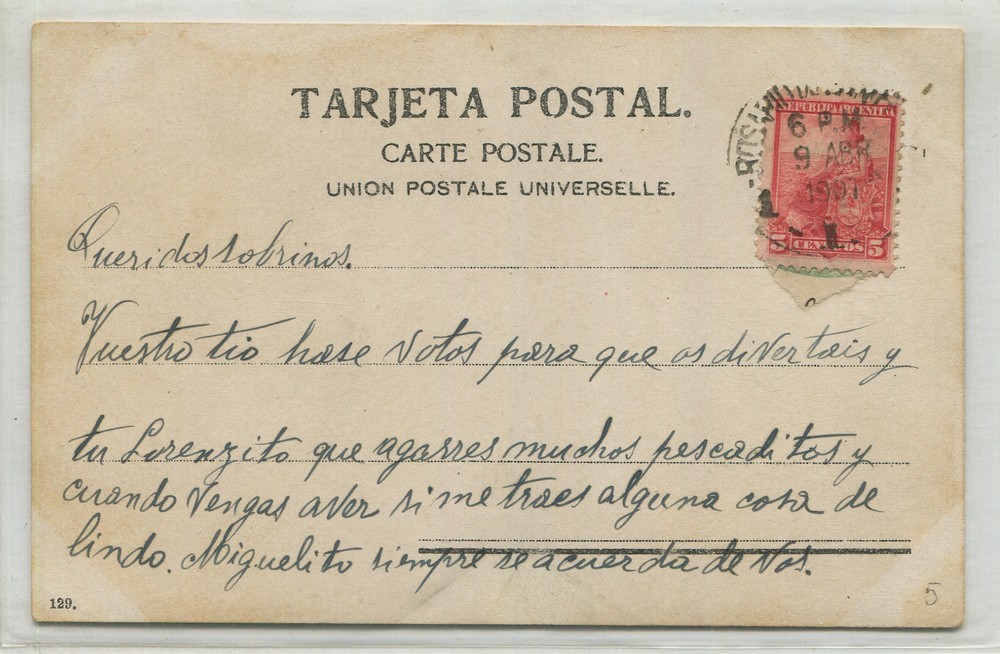 TARJETA POSTAL.
CARTE POSTALE.
UNION POSTALE UNIVERSELLE.
REPUBLICA ARGENTINA
6 P.M.
9 ABR
1
5 CENTAVOS 5
Queridos sobrinos.
Vuestro tio hase votos para que os divertais y
tu Lorenzito que agarres muchos pescaditos y
cuando vengas aver si me traes alguna cosa de
lindo. Miguelito siempre se acuerda de vos.
129.
5